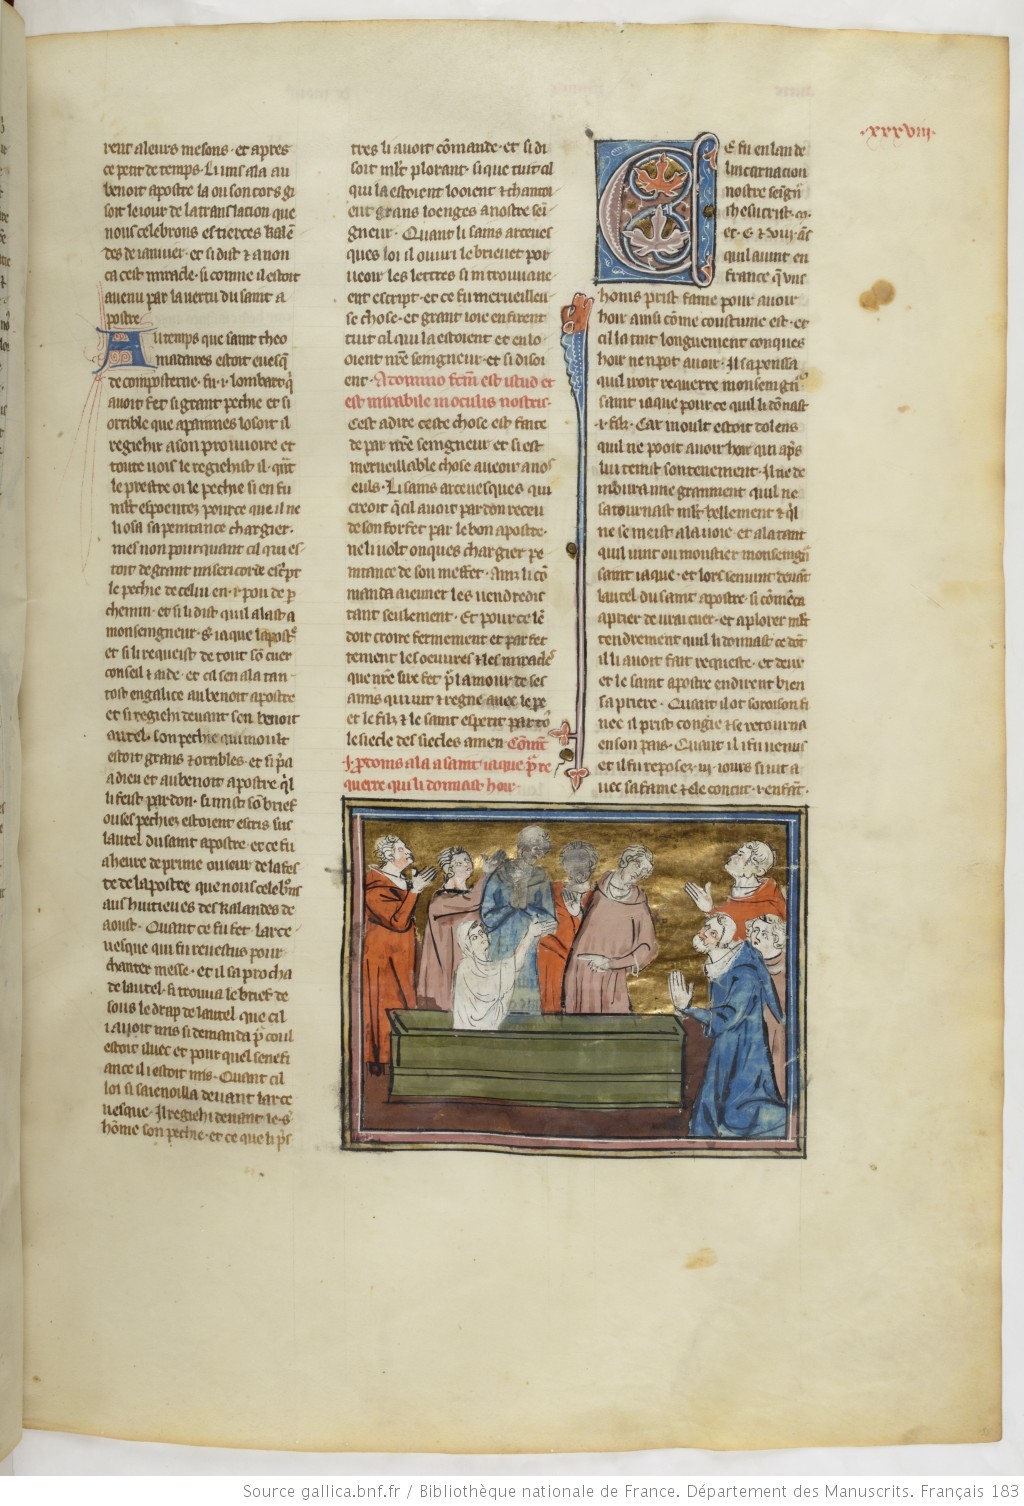 .xxxviii.
rent a leurs mesons. et apres
ce petit de temps. Li mis ala au
benoit apostre la ou son cors gi
soit le iour de la translation que
nous celebrons es tierces kalẽ
des de ianuier. et si dist ⁊ anon
ca cest miracle. si comme il estoit
auenu par la uertu du saint a
postre.
Au temps que saint theo
madaires estoit euesq̃
de composterne. fu .i. lombart q̃
auoit fet si grant pechie et si
orrible que a paines losoit il
regiehir a son prouuoire et
toute uois le regiehist il. q̃nt
le prestre oi le pechie si en fu
ml̃t espoentez pource que il ne
li osa sa penitance chargier.
mes non pourquant cil qui es-
toit de grant misericorde escript
le pechie de celui en .i. pou de p̃
chemin. et si li dist quil alast a
monseigneur .s. iaque lapostr̃
et si li requeist de tout sõ cuer
conseil ⁊ aide. et cil sen ala tan-
tost en galice au benoit apostre
et si regiehi deuant son benoit
autel. son pechie qui moult
estoit grans ⁊ orribles. et si p̃a
a dieu et au benoit apostre q̃l
li feist pardon. si mist sõ brief
ou ses pechiez estoient escris sus
lautel du saint apostre. et ce fu
a heure de prime ou iour de la fes
te de lapostre que nous celebrõs
aus huitieues des kalandes de
aoust. Quant ce fu fet. larce-
uesque qui fu reuestus pour
chanter messe. et il saprocha
de lautel. si trouua le brief de
sous le drap de lautel que cil
i auoit mis si demanda p̃ coi il
estoit iluec et pour quel senefi
ance il i estoit mis. Quant cil
loi si sagenoilla deuant larce
uesque. Il regiehi deuant le .s.
hõme son pechie. et ce que li p̃s
tres li auoit cõmande. et si di
soit ml̃t plorant. si que tuit cil
qui la estoient looient ⁊ chanto
ient grans loenges a nostre sei-
gneur. Quant li sains arceues
ques loi il ouuri le brieuet por
ueoir les lettres si ni trouua ne
ent escript. et ce fu merueilleu
se chose. et grant ioie en firent
tuit cil qui la estoient et enlo
oient nr̃e seingneur. et si disoi
ent. A domino factum est istud et
est mirabile in oculis nostris.
Cest a dire ceste chose est faite
de par nr̃e seingneur et si est
merueillable chose a ueoir a nos
eulz. Li sains arceuesques qui
creoit q̃ cil auoit pardon receu
de son forfet par le bon apostre.
ne li uolt onques chargier pe
nitance de son meffet. Ainz li cõ
manda a ieuner les uendredis
tant seulement. Et pour ce lẽ
doit croire fermement et parfet
tement les oeuures ⁊ les miracles
que nr̃e sire fet p̃ lamour de ses
amis qui uit ⁊ regne auec le pe
re et le filz ⁊ le saint esperit par tõ
le siecle des siecles amen. Cõmẽt
.i. preudoms ala a saint iaque p̃ re
querre qui li donnast hoir.
Ce fu en lan de
lincarnation
nostre seigñ
ihesucrist. m.
et .c. ⁊ viij. ãs
quil auint en
france q̃ vns
homs prist fame pour auoir
hoir ainsi cõme coustume est. et
cil la tint longuement conques
hoir nen pot auoir. Il sapenssa
quil iroit requerre monseigñr
saint iaque pour ce quil li dõnast
.i. filz. Car moult estoit dolens
quil ne pooit auoir hoir qui ap̃s
lui tenist son tenement. Il ne de
moura mie granment quil ne
satournast ml̃t bellement ⁊ q̃l
ne se meist a la uoie. et ala tant
quil uint ou moustier monseigñ
saint iaque. et lors sen uint deuãt
lautel du saint apostre. si cõmẽca
a prier de urai cuer. et a plorer ml̃t
tendrement quil li donnast ce dõt
il li auoit fait requeste. et dieux
et le saint apostre endirent bien
sa priere. Quant il ot soroison fi
nee il prist congie ⁊ se retourna
en son pais. Quant il i fu uenus
et il fu reposez .iij. iours si iut a
uec sa fame ⁊ ele concut .i. enfant.
Source gallica.bnf.fr / Bibliothèque nationale de France. Département des Manuscrits. Français 183